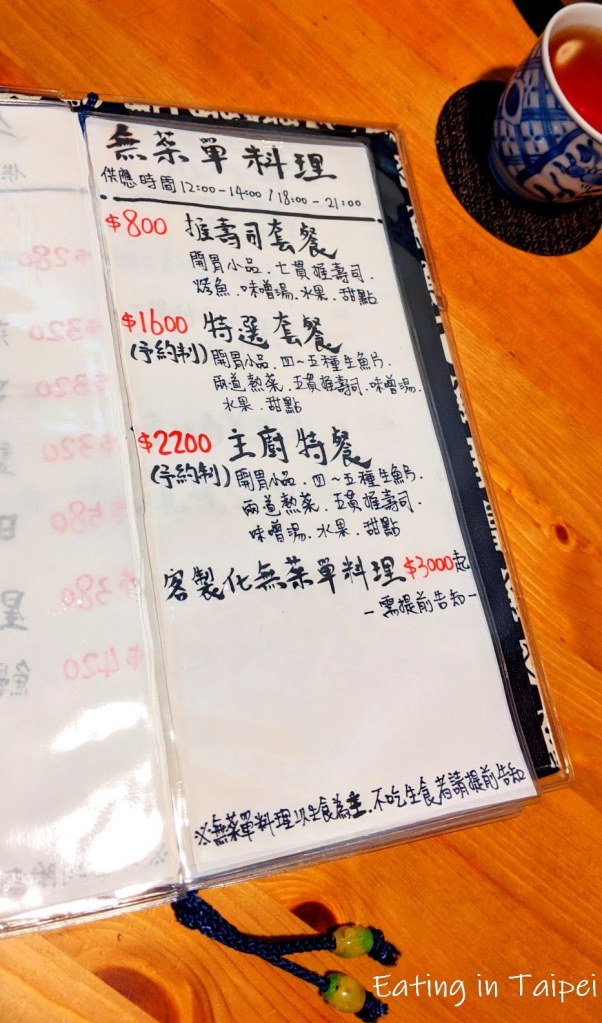 無菜單料理
供應時間 12:00-14:00 / 18:00-21:00
$800 握壽司套餐
開胃小品.七貫握壽司.
烤魚.味噌湯.水果.甜點
$1600 特選套餐
(予約制) 開胃小品.四~五種生魚片
兩道熱菜.五貫握壽司.味噌湯.
水果.甜點
$2200 主廚特餐
(予約制) 開胃小品.四~五種生魚片
兩道熱菜.五貫握壽司.
味噌湯.水果.甜點
客製化無菜單料理 $3000起
-需提前告知-
※無菜單料理以生食為主.不吃生食者請提前告知
$280
$320
$320
$320
$580
$380
$420
Eating in Taipei